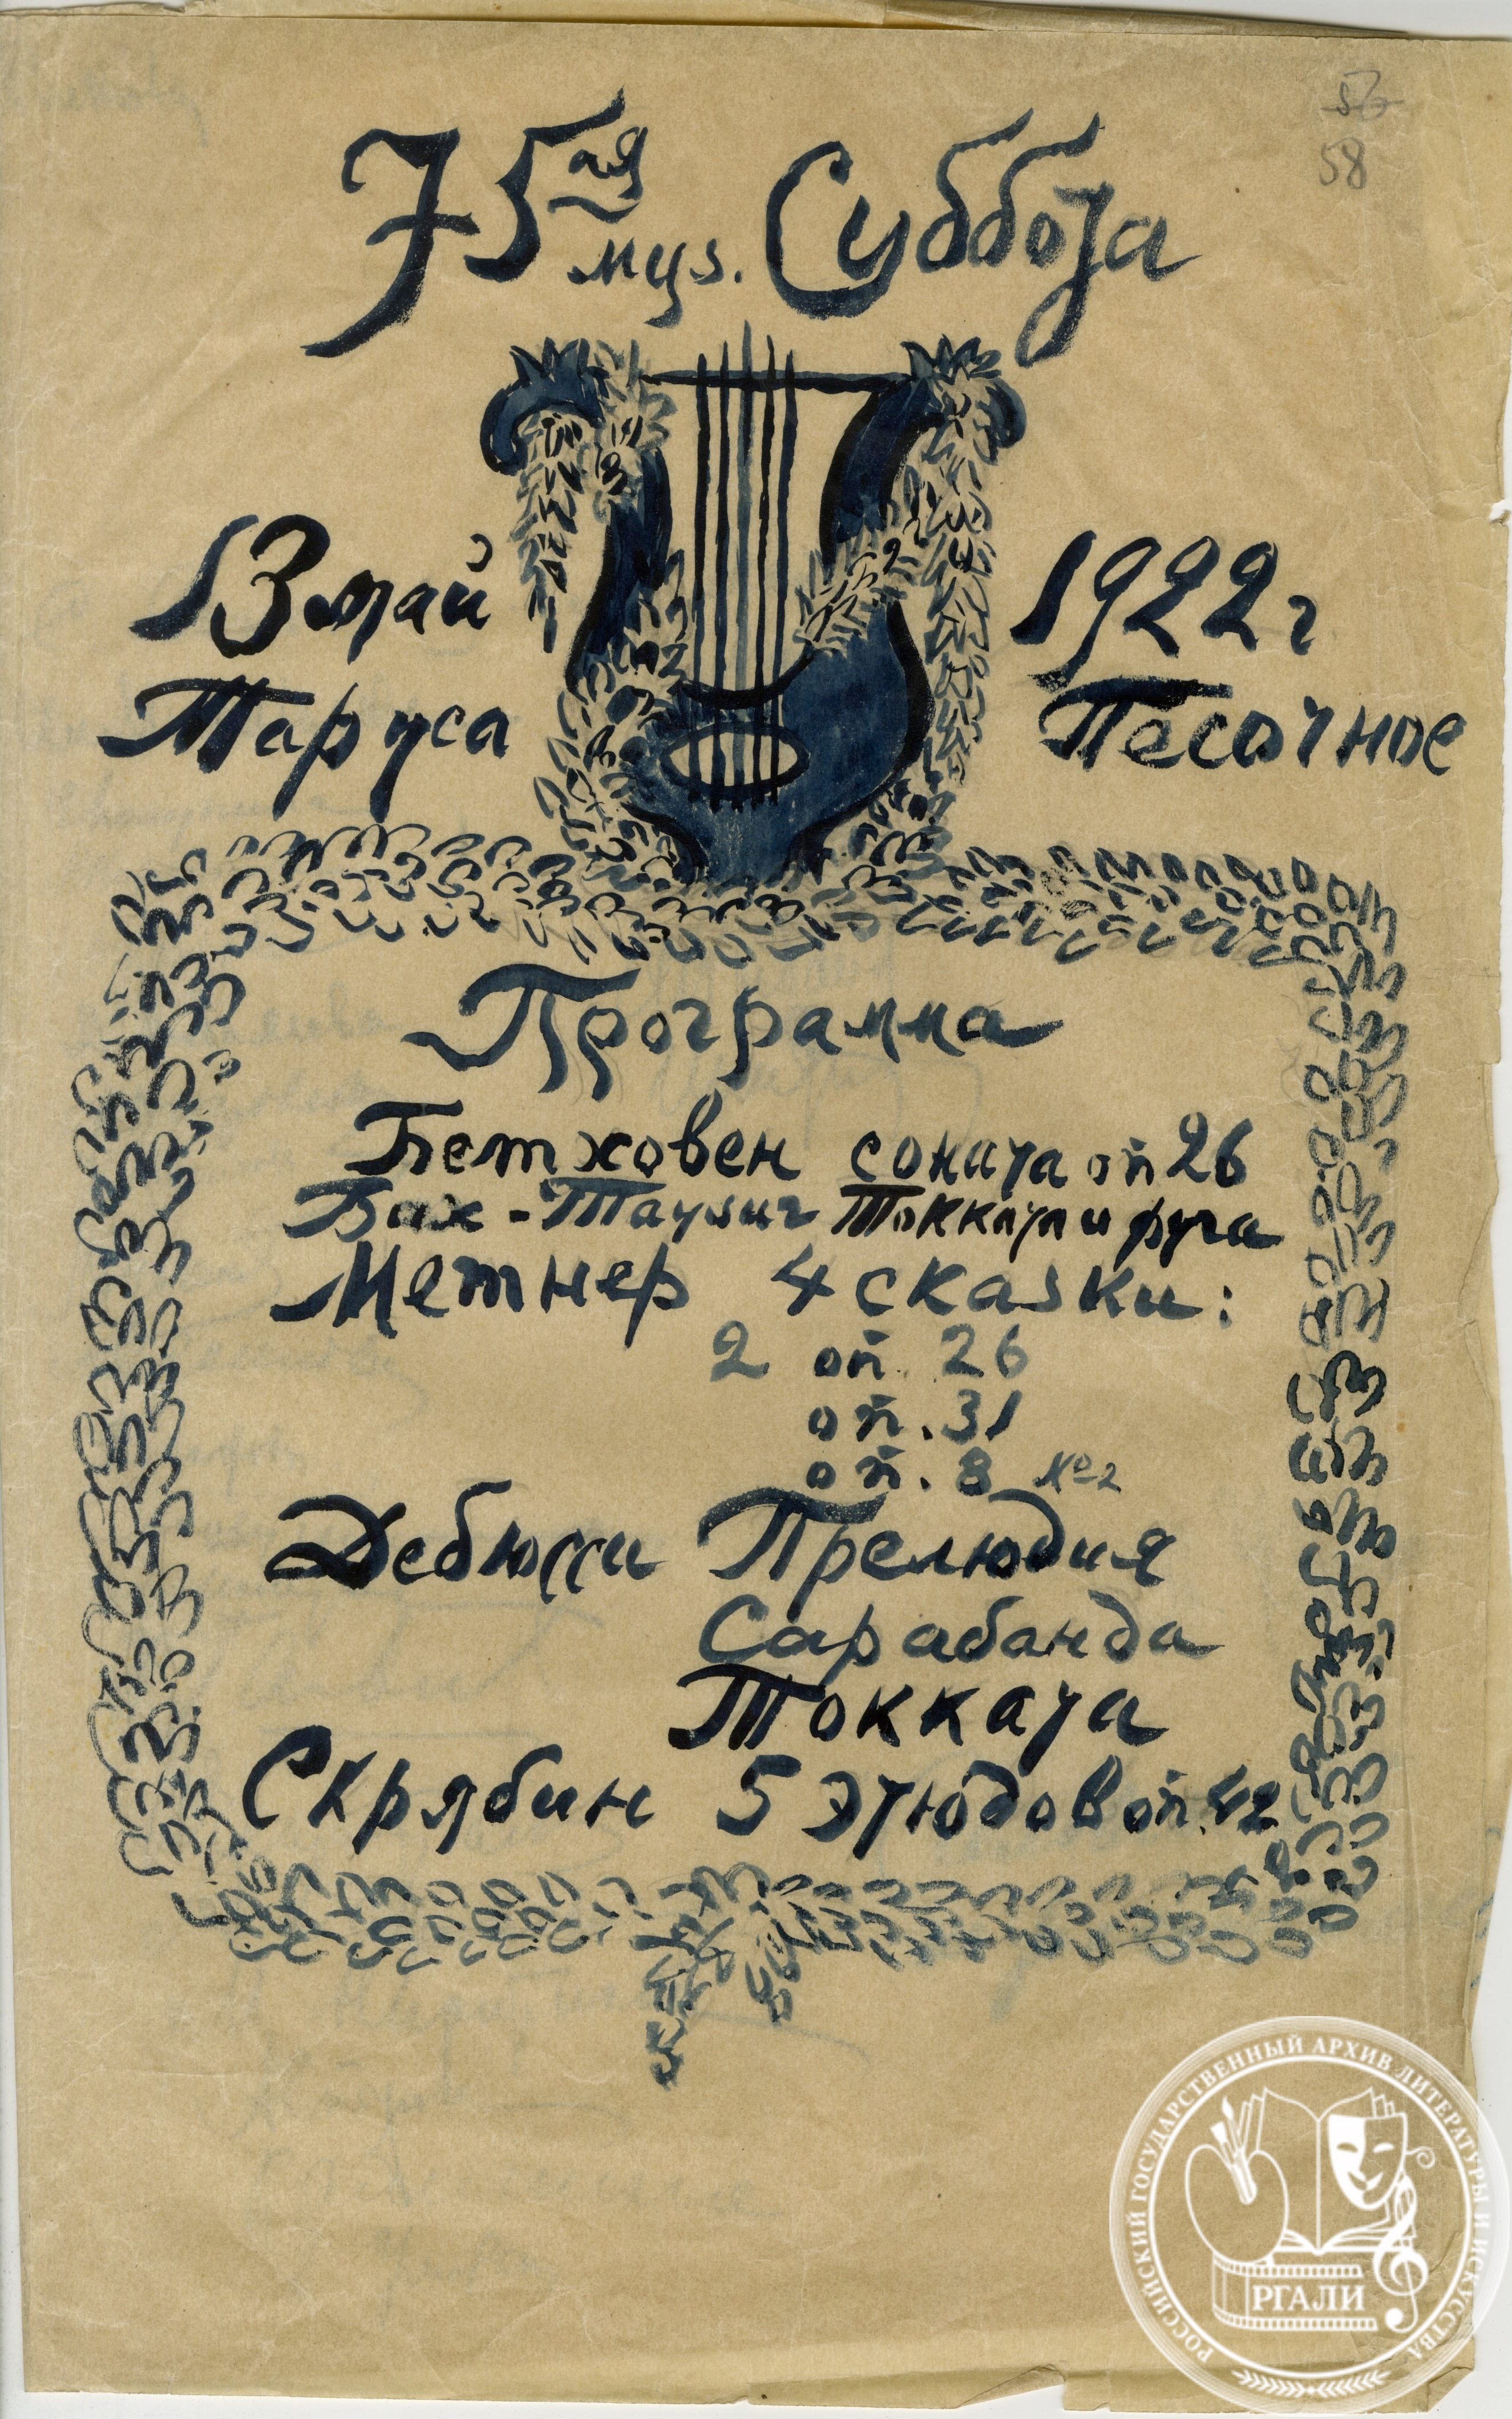 57
58
75ая муз. Суббота
13 май 1922 г
Таруса Песочное
Программа
Бетховен соната оп 26
Бах-Таузиг Токката и фуга
Метнер 4 сказки:
2 оп. 26
оп. 31
оп. 8 №2
Дебюсси Прелюдия
Сарабанда
Токката
Скрябин 5 этюдов оп. 42
РОССИЙСКИЙ ГОСУДАРСТВЕННЫЙ АРХИВ ЛИТЕРАТУРЫ И ИСКУССТВА
РГАЛИ